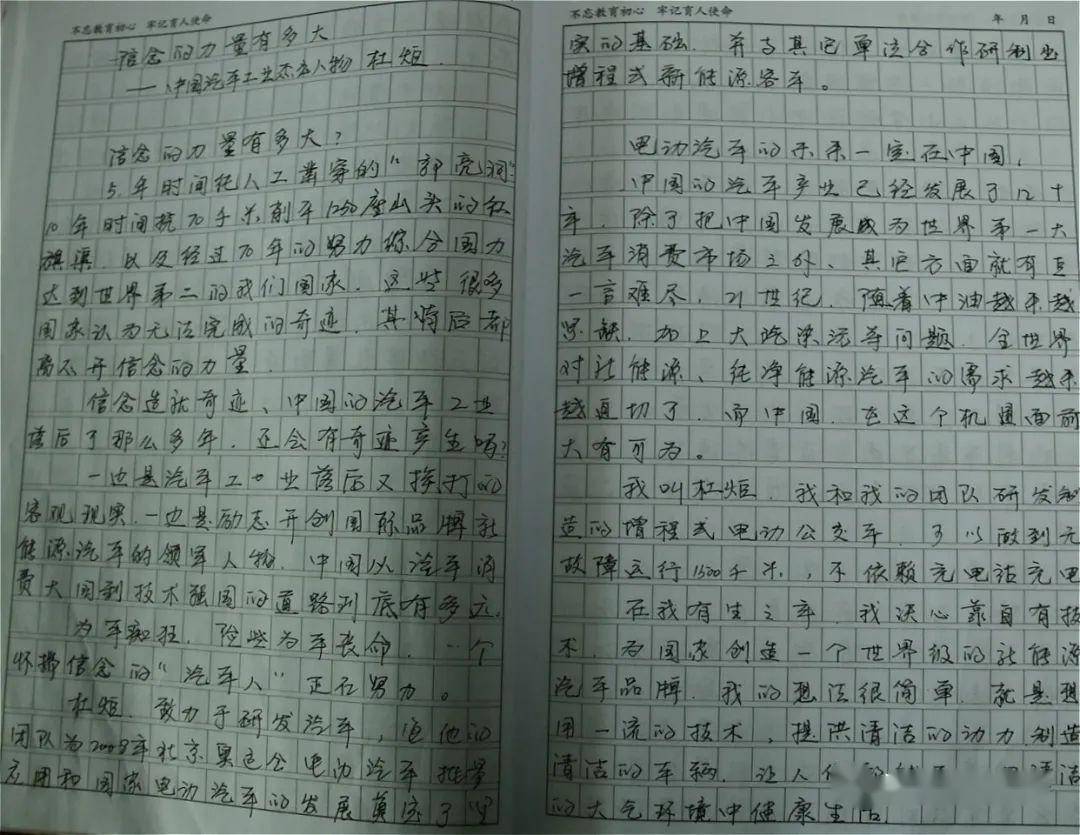 不忘教育初心 牢记育人使命
信念的力量有多大
——中国汽车工业杰出人物 杜炬.
信念的力量有多大？
5年时间纯人工凿穿的“郭亮洞”
10年时间挠70千米削平1250座山头的红
旗渠.以及经过70年的努力综合国力
达到世界第二的我们国家.这些很多
国家认为无法完成的奇迹.其背后都
离不开信念的力量.
信念造就奇迹、中国的汽车工业
落后了那么多年.还会有奇迹产生吗?
一边是汽车工业落后又挨打的
客观现实.一边是励志开创国际品牌新
能源汽车的领军人物.中国从汽车消
费大国到技术强国的道路到底有多远.
为车痴狂.险些为车丧命.一个
怀揣信念的“汽车人”正在努力。
杜炬.致力于研发汽车，值他的
团队为2008年北京奥运会电动汽车批量
应用和国家电动汽车的发展奠定了坚
不忘教育初心 牢记育人使命
年 月 日
实的基础.并与其它单位合作研制出
增程式新能源客车。
电动汽车的未来一定在中国，
中国的汽车产业已经发展了几十
年.除了把中国发展成为世界第一大
汽车消费市场之外、其它方面就有点
一言难尽，21世纪.随着石油越来越
紧缺.加上大汽染污等问题.全世界
对新能源、纯净能源汽车的需求越来
越迫切了.而中国.在这个机遇面前
大有可为。
我叫杜炬.我和我的团队研发制
造的增程式电动公交车.可以做到无
故障运行1500千米，不依赖充电站充电
在我有生之年.我决心靠自有技
术.为国家创造一个世界级的新能源
汽车品牌.我的想法很简单.就是想
用一流的技术，提供清洁的动力.制造
清洁的车辆.让人们 清洁
的大气环境中健康生活